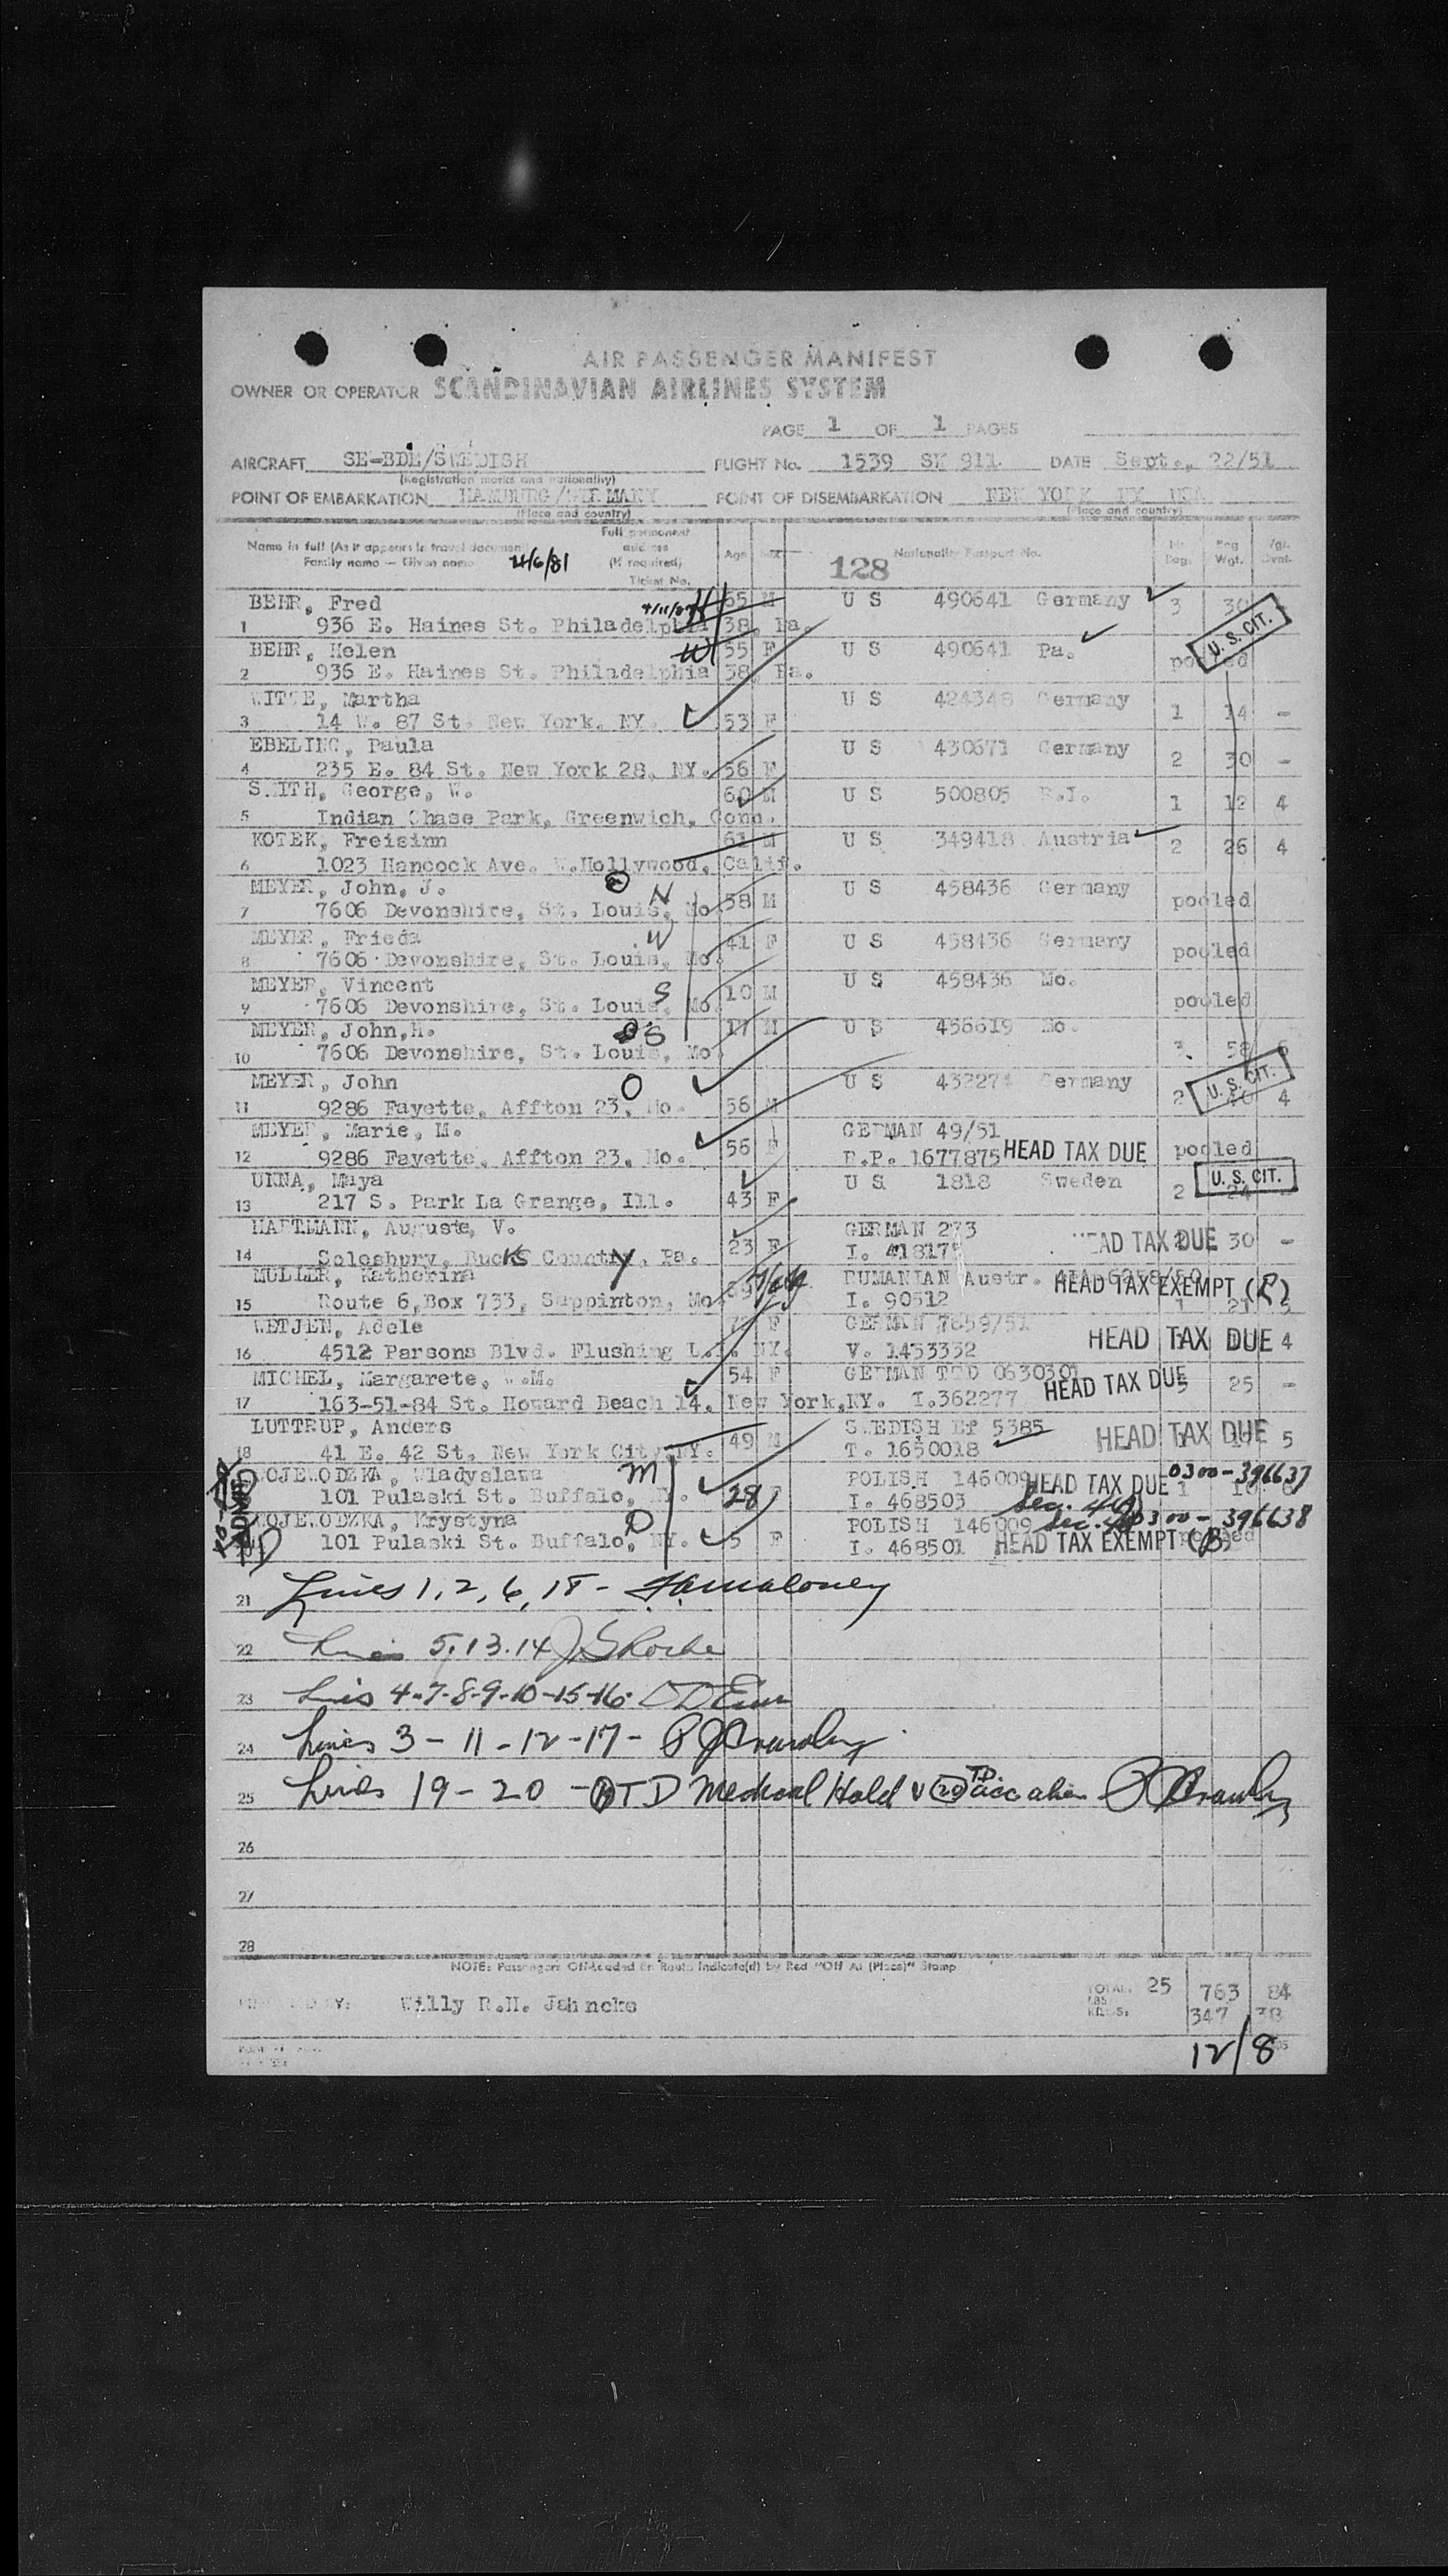 AIR PASSENGER MANIFEST
OWNER OR OPERATOR SCANDINAVIAN AIRLINES SYSTEM
PAGE 1 OF 1 PAGES
AIRCRAFT SE-BDE/SWEDISH FLIGHT No. 1539 SK 911. DATE Sept., 22/51
(Registration marks and nationality)
POINT OF EMBARKATION HAMBURG/GERMANY POINT OF DISEMBARKATION NEW YORK NY USA
(Place and country) (Place and country)
Name in full (As it appears in travel document) Full permanent address (If required) Age Sex Nationality Passport No.
Family name — Given name Ticket No. 128
BEHR, Fred 65 M U S 490641 Germany 3 30
1 936 E. Haines St. Philadelphia 38, Pa.
BEHR, Helen W 55 F U S 490641 Pa. pooled U. S. CIT.
2 936 E. Haines St. Philadelphia 38, Pa.
WITTE, Martha U S 424348 Germany
3 14 W. 87 St. New York, NY. 53 F 1 14 -
EBELING, Paula U S 430671 Germany
4 235 E. 84 St. New York 28, NY. 56 F 2 30 -
SMITH, George, W. 60 M U S 500805 R.I. 1 12 4
5 Indian Chase Park, Greenwich, Conn.
KOTEK, Freisinn 61 M U S 349418 Austria 2 26 4
6 1023 Hancock Ave. W.Hollywood, Calif.
MEYER, John, J. U S 458436 Germany
7 7606 Devonshire, St. Louis, Mo. 58 M pooled
MEYER, Frieda W 41 F U S 458436 Germany
8 7606 Devonshire, St. Louis, Mo. pooled
MEYER, Vincent S 10 M U S 458436 Mo.
9 7606 Devonshire, St. Louis, Mo. pooled
MEYER, John,H. S 17 M U S 456619 Mo.
10 7606 Devonshire, St. Louis, Mo. 3 58
MEYER, John O U S Germany U. S. CIT.
11 9286 Fayette, Affton 23, Mo. 56 M 2 4
MEYER, Marie, M. GERMAN 49/51
12 9286 Fayette, Affton 23, Mo. 56 F R.P. 1677875 HEAD TAX DUE pooled
UNNA, Maya U S 1818 Sweden U. S. CIT.
13 217 S. Park La Grange, Ill. 43 F 2 24
HARTMANN, Auguste, V. GERMAN 273
14 Solesbury, Bucks County, Pa. 23 F HEAD TAX DUE 30 -
MULLER, Katherina RUMANIAN Austr.
15 Route 6,Box 733, Sappinton, Mo. I. 90512 HEAD TAX EXEMPT (R) 1 21 5
WETJEN, Adele F GERMAN 7859/51
16 4512 Parsons Blvd. Flushing L.I. NY. V. 1453352 HEAD TAX DUE 4
MICHEL, Margarete, W.M. 54 F GERMAN TTD 0630301
17 163-51-84 St. Howard Beach 14, New York,NY. I.362277 HEAD TAX DUE 25 -
LUTTRUP, Anders SWEDISH Ef 5385
18 41 E. 42 St. New York City NY. 49 M T. 1650018 HEAD TAX DUE 5
WOJEWODZKA, Wladyslawa M POLISH 146009 HEAD TAX DUE 0300-396637
101 Pulaski St. Buffalo, NY. 28 F I. 468503
WOJEWODZKA, Krystyna D POLISH 146009 0300-396638
101 Pulaski St. Buffalo, NY. 5 F I. 468501 HEAD TAX EXEMPT
21 Lines 1, 2, 6, 18 - Maloney
22 Lines 5.13.14
23 Lines 4-7-8-9-10-15-16-
24 Lines 3 - 11 - 12 - 17 -
25 Lines 19 - 20 - TD Medical Hold
26
27
28
NOTE: Passengers Off-loaded En Route Indicate(d) by Red "Off At (Place)" Stamp
Willy R.H. Jahncke TOTAL 25 763 84
LBS. KILOS. 347 38
12/8